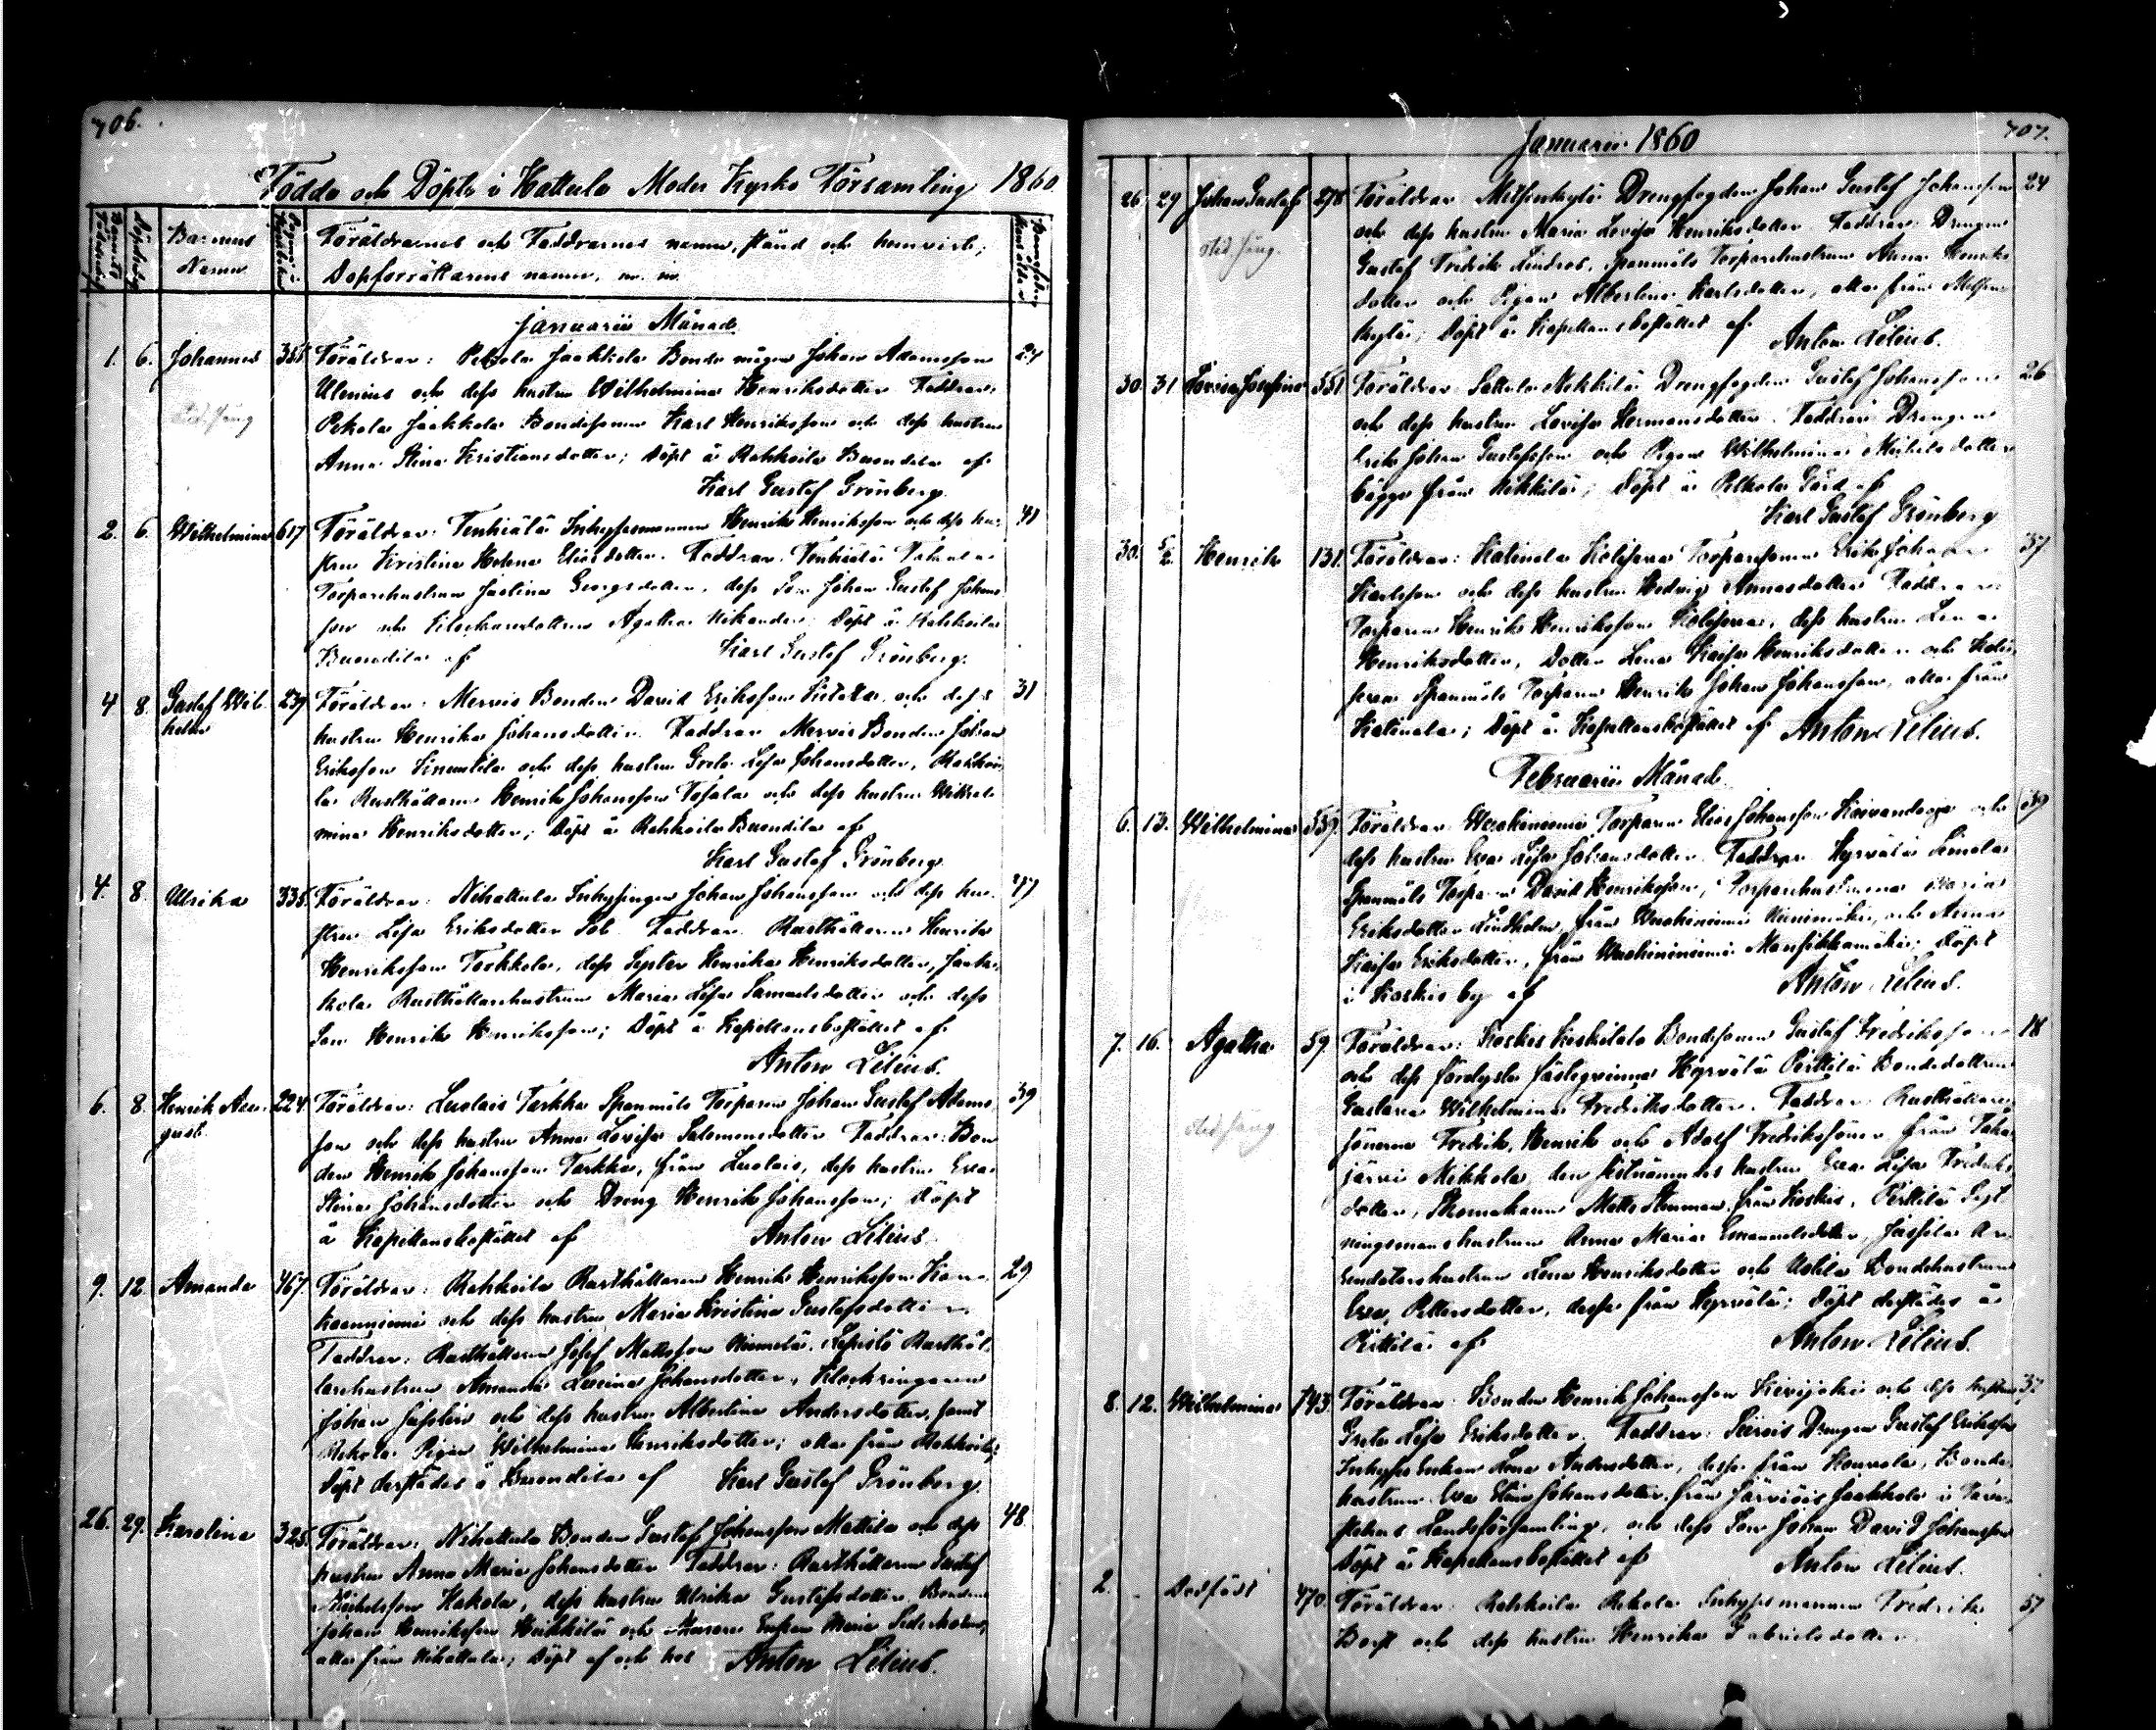 706.
Födde och Döpte i Hattula Moder Kyrko Församling 1860.
Barnens Namn
Föräldrarnes och Faddrarnes namn, stånd och hemvist;
Dopförrättarens namn, m. m.
Januarii Månad
1. 6. Johannes 355. Föräldrar: Pekola Jaakkola Bonde mågen Johan Adamsson 24
Ulenius och dess hustru Wilhelmina Henriksdotter Faddrar:
Pekola Jaakkola Bondesonen Karl Henriksson och dess hustru
Anna Stina Kristiansdotter; Döpt å Rahkoila Buondila af
Karl Gustaf Grönberg.
2. 6. Wilhelmina 617 Föräldrar: Tenhiälä Inhysesmannen Henrik Henriksson och dess hu- 41
stru Kristina Helena Eliasdotter. Faddrar: Tenhiälä
Torparehustrun Justina Georgsdotter, dess Son Johan Gustaf Johans
son och Klockaredottren Agatha Nikander; Döpt å Rahkoila
Buondila af Karl Gustaf Grönberg.
4 8. Gustaf Wil- 239 Föräldrar: Mervis Bonden David Eriksson och dess 31
helm hustru Henrika Johansdotter. Faddrar Mervis Bonden Johan
Eriksson och dess hustru Greta Lisa Johansdotter, Rahkoi
la Rusthållaren Henrik Johansson Tofala och dess hustru Wilhel
mina Henriksdotter; Döpt å Rahkoila Buondila af
Karl Gustaf Grönberg
4. 8. Ulrika 335. Föräldrar: Nihattula Inhysingen Johan Johansson och dess hu-
stru Lisa Eriksdotter Faddrar. Rusthållaren Henrik
Henriksson Torkkola, dess Syster Henrika Henriksdotter, Jaak
kola Rusthållarehustrun Maria Lisa Samuelsdotter och dess
Son Henrik Henriksson; Döpt å Kapellansbostället af
Anton Lilius.
6. 8. Henrik Au- 224. Föräldrar: Luolais Tarkka Spanmåls Torparen Johan Gustaf Adams 39
gust. son och dess hustru Anna Lovisa Salomonsdotter Faddrar: Bon
den Henrik Johansson Tarkka, från Luolais, dess hustru Eva
Stina Johansdotter och Dreng Henrik Johansson; Döpt
å Kapellansbostället af Anton Lilius.
9. 12 Amanda 467. Föräldrar: Rahkoila Rusthållaren Henrik Henriksson 29
och dess hustru Maria Kristina Gustafsdotter
Faddrar: Rusthållaren Josef Mattsson Lepistö Rusthål
larehustrun Amanda Johansdotter, Klockringaren
Johan och dess hustru Albertina Andersdotter, samt
Rekola Pigan Wilhelmina Henriksdotter; alla från Rahkoila;
Döpt derstädes å Buondila af Karl Gustaf Grönberg.
26. 29. Karolina 325. Föräldrar: Nihattula Bonden Gustaf Johansson Mattila och dess 48
hustru Anna Maria Johansdotter Faddrar: Rusthållaren Gustaf
Michelsson Hakola, dess hustru Ulrika Gustafsdotter, Bonden
Johan Henriksson Heikkilä och Enkan Maria Sederholm,
alla från Nihattula; Döpt af och hos Anton Lilius.
Januarii 1860
707.
26. 29 Johan Gustaf 278 Föräldrar: Drengfogden Johan Gustaf Johansson 24
och dess hustru Maria Lovisa Henriksdotter. Faddrar: Drengen
Gustaf Fredrik Lindros, Spanmåls Torparehustrun Anna Henriks
dotter och Pigan Albertina Karlsdotter, alla från
Döpt å Kapellansbostället af Anton Lilius.
30. 31 Lovisa Josefina 551 Föräldrar: Sattula Nikkilä Drengfogden Gustaf Johansson 26
och dess hustru Lovisa Hermansdotter. Faddrar: Drengen
Erik Johan Gustafsson och Pigan Wilhelmina Michelsdotter
bägge från Nikkilä; Döpt å Pelkola Gård af
Karl Gustaf Grönberg
30. 5/2. Henrik 131. Föräldrar: Katinala Torparesonen Erik Johan 37
Karlsson och dess hustru Hedvig Annasdotter Faddrar:
Torparen Henrik Henriksson, dess hustru Lena
Henriksdotter, Dotter Lena Kaisa Henriksdotter och
Spanmåls Torparen Henrik Johan Johansson, alla från
Katinala; Döpt å Kapellansbostället af Anton Lilius.
Februarii Månad.
6. 13. Wilhelmina 559. Föräldrar: Torparen Elias Johansson och 39
dess hustru Eva Lisa Johansdotter. Faddrar: Hyrvälä Simola
Spanmåls Torparen David Henriksson, Torparehustrurna Maria
Eriksdotter Lindholm, från och Anna
Kaisa Eriksdotter, från Mansikkamäki; Döpt
i Koskis by af Anton Lilius.
7. 16. Agatha 59. Föräldrar: Koskis Keskitalo Bondesonen Gustaf Fredriksson 18
och dess fästeqvinna Hyrvälä Perttilä Bondedottren
Gustava Wilhelmina Fredriksdotter. Faddrar: Rusthållare
sönerna Fredrik, Henrik och Adolf Fredrikssöner från
järvi Mikkola, den hustru Eva Lisa Fredriks
dotter, från Koskis, Perttilä
hustrun Anna Maria Emanuelsdotter, Jussila Ar-
rendatorshustrun Lena Henriksdotter och Uotila Bondehustrun
Eva Pettersdotter, desse från Hyrvälä; Döpt derstädes å
Perttilä af Anton Lilius.
8. 12. Wilhelmina 143. Föräldrar: Bonden Henrik Johansson Kivijoki och dess hustru 37
Greta Lisa Eriksdotter. Faddrar: Drengen Gustaf Eriksson
Inhyses Enkan Lena Andersdotter, desse från Bonde
hustrun Eva Stina Johansdotter från Järviöis Jaakkola i Tava
stehus Landsförsamling, och dess Son Johan David Johansson
Döpt å Kapellansbostället af Anton Lilius.
2. Dödfödt 470 Föräldrar: Rahkoila Rekola Inhysesmannen Fredrik 57
och dess hustru Henrika Gabrielsdotter